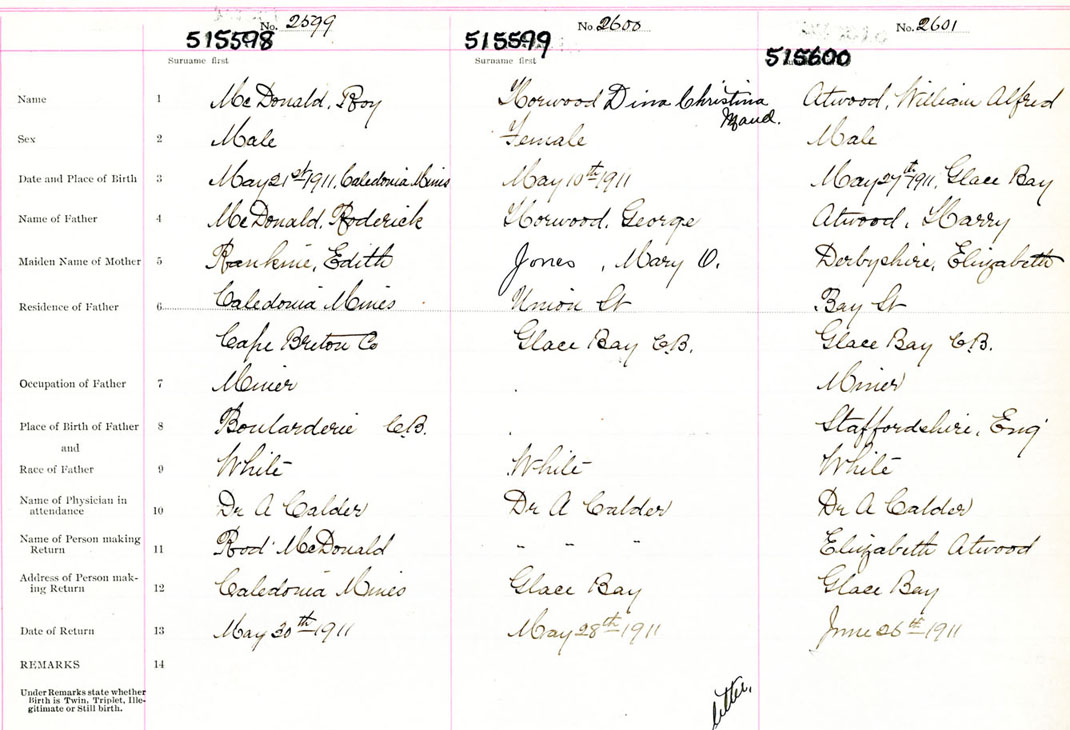 No. 2599 No. 2600 No. 2601
515598 515599 515600
Surname first Surname first
Name 1 McDonald, Roy Horwood Dina Christina Maud. Atwood, William Alfred
Sex 2 Male Female Male
Date and Place of Birth 3 May 21st 1911, Caledonia Mines May 10th 1911 May 27th 1911, Glace Bay
Name of Father 4 McDonald, Roderick Horwood, George Atwood, Harry
Maiden Name of Mother 5 Rankine, Edith Jones, Mary O. Derbyshire, Elizabeth
Residence of Father 6 Caledonia Mines Union St Bay St
Cape Breton Co Glace Bay C.B. Glace Bay C.B.
Occupation of Father 7 Miner Miner
Place of Birth of Father 8 Boularderie C.B. Staffordshire, Eng
and
Race of Father 9 White White White
Name of Physician in
attendance 10 Dr A Calder Dr A Calder Dr A Calder
Name of Person making
Return 11 Rod McDonald " " " Elizabeth Atwood
Address of Person mak-
ing Return 12 Caledonia Mines Glace Bay Glace Bay
Date of Return 13 May 30th 1911 May 28th 1911 June 26th 1911
REMARKS 14
Under Remarks state whether
Birth is Twin, Triplet, Ille-
gitimate or Still birth.